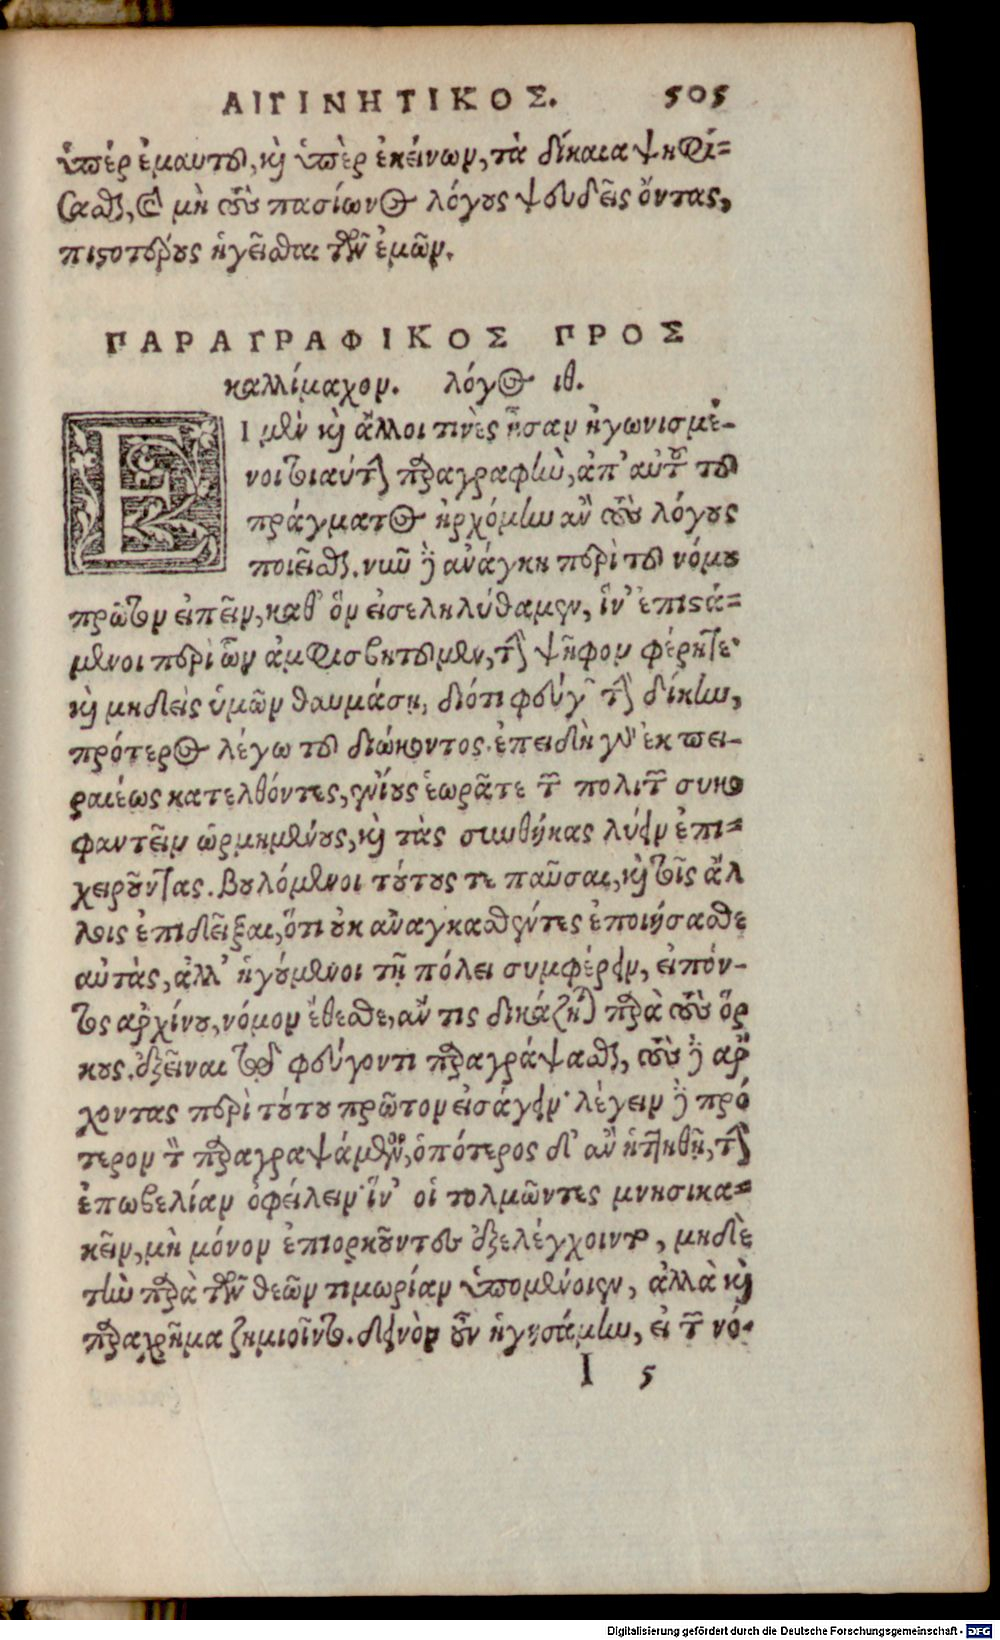 ΑΙΓΙΝΗΤΙΚΟΣ. 505
ὑπὲρ ἐμαυτοῦ, καὶ ὑπὲρ ἐκείνων, τὰ δίκαια ψηφί=
σασθαι, καὶ μὴ τοὺς πασίωνος λόγους ψευδεῖς ὄντας,
πιστοτέρους ἡγεῖσθαι τῶν ἐμῶν.
ΠΑΡΑΓΡΑΦΙΚΟΣ ΠΡΟΣ
καλλίμαχον. λόγος ιθ.
ΕΙ μὲν καὶ ἄλλοι τινὲς ἦσαν ἠγωνισμέ-
νοι τοιαύτην παραγραφὴν, ἀπ' αὐτοῦ τοῦ
πράγματος ἠρχόμην ἂν τοὺς λόγους
ποιεῖσθαι. νῦν δὲ ἀνάγκη περὶ τοῦ νόμου
πρῶτον εἰπεῖν, καθ' ὃν εἰσεληλύθαμεν, ἵν' ἐπιστά=
μενοι περὶ ὧν ἀμφισβητοῦμεν, τὴν ψῆφον φέρητε·
καὶ μηδεὶς ὑμῶν θαυμάσῃ, διότι φεύγων τὴν δίκην,
πρότερος λέγω τοῦ διώκοντος. ἐπειδὴ γὰρ ἐκ πει-
ραιέως κατελθόντες, ἐνίους ἑωρᾶτε τῶν πολιτῶν συκο
φαντεῖν ὡρμημένους, καὶ τὰς συνθήκας λύειν ἐπι=
χειροῦντας. βουλόμενοι τούτους τε παῦσαι, καὶ τοῖς ἄλ
λοις ἐπιδεῖξαι, ὅτι οὐκ ἀναγκασθέντες ἐποιήσασθε
αὐτὰς, ἀλλ' ἡγούμενοι τῇ πόλει συμφέρειν, εἰπόν-
τος ἀρχίνου, νόμον ἔθεσθε, ἄν τις δικάζηται παρὰ τοὺς ὅρ
κους. ἐξεῖναι τῷ φεύγοντι παραγράψασθαι, τοὺς δὲ ἄρ
χοντας περὶ τούτου πρῶτον εἰσάγειν· λέγειν δὲ πρό
τερον τὸν παραγραψάμενον, ὁπότερος δ' ἂν ἡττηθῇ, τὴν
ἐπωβελίαν ὀφείλειν· ἵν' οἱ τολμῶντες μνησικα=
κεῖν, μὴ μόνον ἐπιορκοῦντες ἐξελέγχοιντο, μηδὲ
τὴν παρὰ τῶν θεῶν τιμωρίαν ὑπομένοιεν, ἀλλὰ καὶ
παραχρῆμα ζημιοῖντο. δεινὸν οὖν ἡγησάμην, εἰ τῶν νό-
I 5
Digitalisierung gefördert durch die Deutsche Forschungsgemeinschaft - DFG